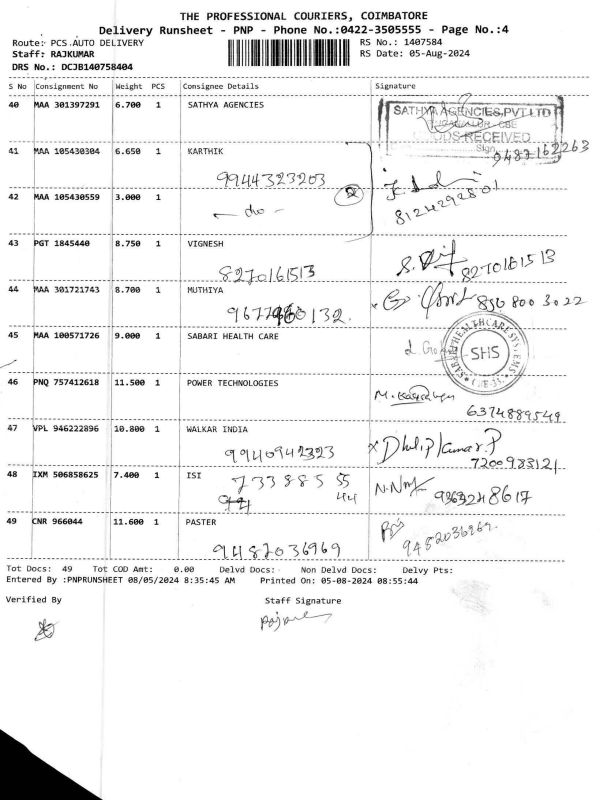 THE PROFESSIONAL COURIERS, COIMBATORE
Delivery Runsheet - PNP - Phone No.:0422-3505555 - Page No.:4
Route: PCS.AUTO DELIVERY RS No.: 1407584
Staff: RAJKUMAR RS Date: 05-Aug-2024
DRS No.: DCJB140758404
S No Consignment No Weight PCS Consignee Details Signature
40 MAA 301397291 6.700 1 SATHYA AGENCIES
SATHYA AGENCIES PVT LTD
GOODS RECEIVED
Sign
9487162263
41 MAA 105430304 6.650 1 KARTHIK
9944323203
42 MAA 105430559 3.000 1
- do -
8124292801
43 PGT 1845440 8.750 1 VIGNESH
8270161513 8270161513
44 MAA 301721743 8.700 1 MUTHIYA
850 800 3022
45 MAA 100571726 9.000 1 SABARI HEALTH CARE
SABARI HEALTHCARE SYSTEMS
SHS
46 PNQ 757412618 11.500 1 POWER TECHNOLOGIES
6374889549
47 VPL 946222896 10.800 1 WALKAR INDIA
9940942323 Dhilip Kumar.P
7200983121
48 IXM 506858625 7.400 1 ISI
733885 55
44
49 CNR 966044 11.600 1 PASTER
9482036969 9482036969
Tot Docs: 49 Tot COD Amt: 0.00 Delvd Docs: Non Delvd Docs: Delvy Pts:
Entered By :PNPRUNSHEET 08/05/2024 8:35:45 AM Printed On: 05-08-2024 08:55:44
Verified By Staff Signature